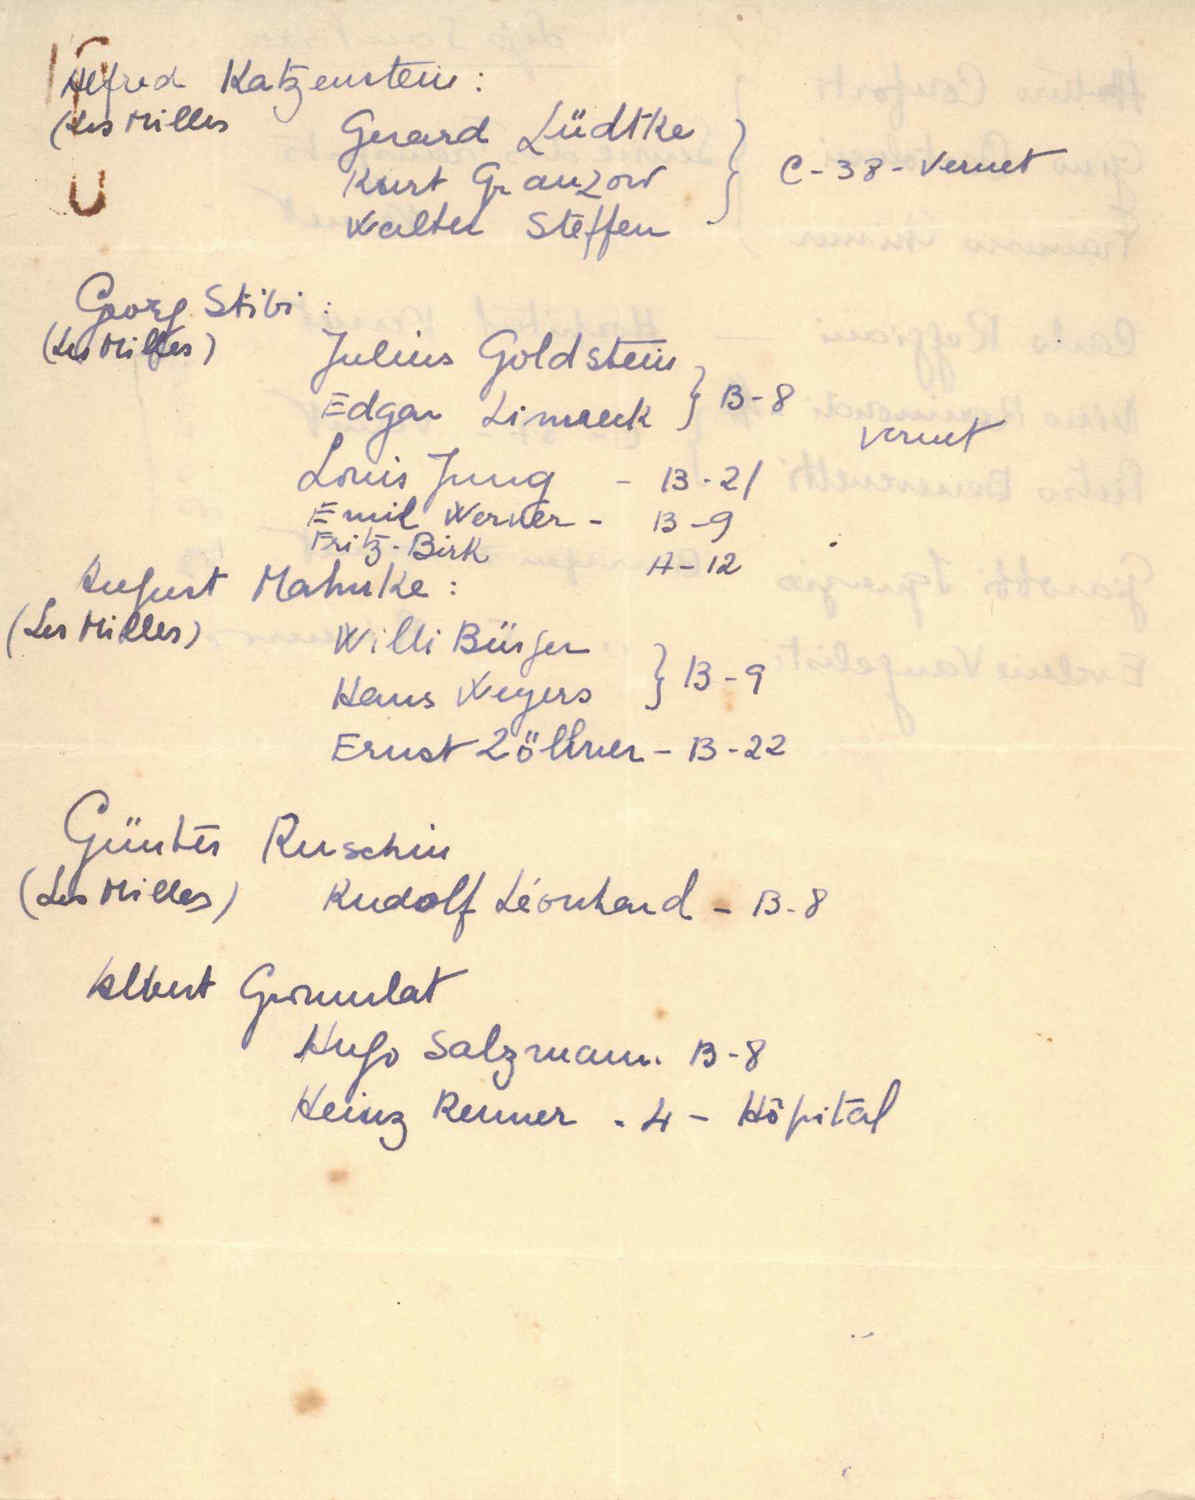 Alfred Katzenstein :
(Les Milles
Gerard Lüdtke
Kurt Granzow } C-38-Vernet
Walter Steffen
Georg Stibi :
(Les Milles)
Julius Goldstein
Edgar } B-8
Vernet
Louis Jung - B-21
Emil Werner - B-9
Fritz-Birk A-12
August Mahnke :
(Les Milles)
Willi Bürger
Hans Weyers } B-9
Ernst Zöllner - B-22
Günter Ruschin
(Les Milles) Rudolf Léonhard - B-8
Albert Gromulat
Hugo Salzmann. B-8
Heinz Renner . 4 - Hôpital